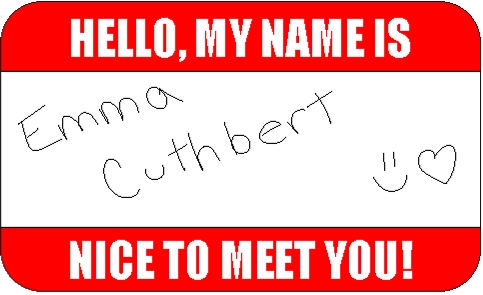 HELLO, MY NAME IS
Emma
Cuthbert
NICE TO MEET YOU!